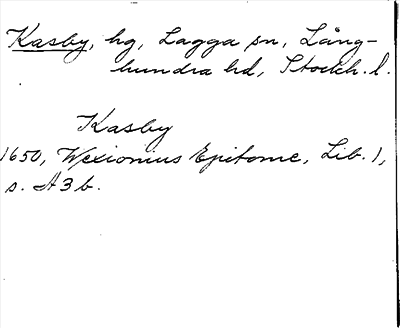 Kasby, hg, Lagga sn, Lång-
hundra hd, Stockh. l.
Kasby
1650, Wexionius Epitome, Lib. 1,
s. A3b.